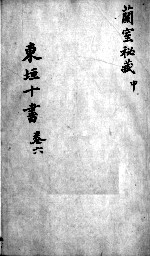 蘭室秘藏 中
東垣十書 卷六